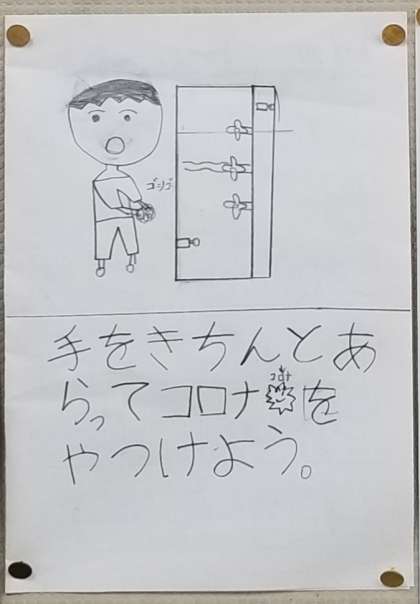 ゴシゴシ
手をきちんとあ
コロナ
らってコロナを
やつけよう。